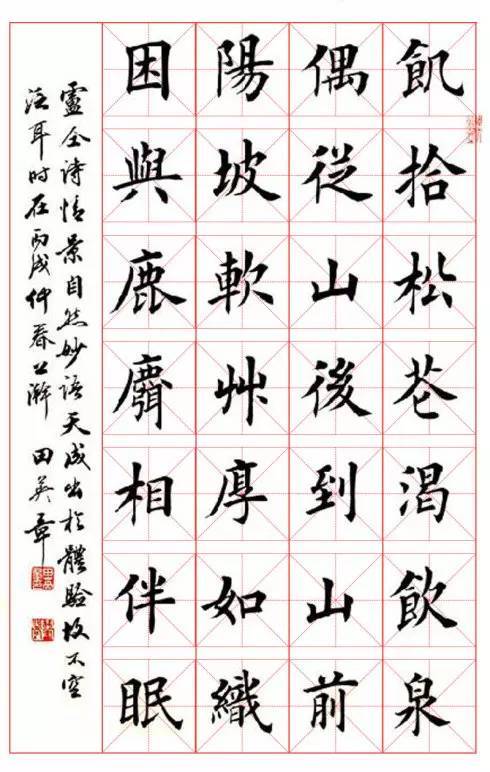 飢拾松花渴飲泉
偶從山後到山前
陽坡軟艸厚如織
困與鹿麛相伴眠
靈仝詩情景自然妙語天成出於體驗故不空
泛耳时在丙戌仲春 田英章